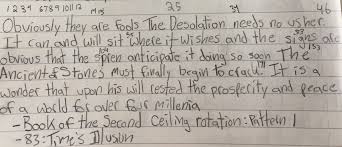 1234 6789101112 M15 25 31 46
Obviously they are fools The Desolation needs no usher.
It can and will sit where it wishes and the signs are
obvious that the spren anticipate it doing so soon The
Ancient of Stones must finally begin to crack. It is a
wonder that upon his will rested the prosperity and peace
of a world for over four millenia
-Book of the Second Ceiling rotation: Pattern 1
-83: Time's Illusion